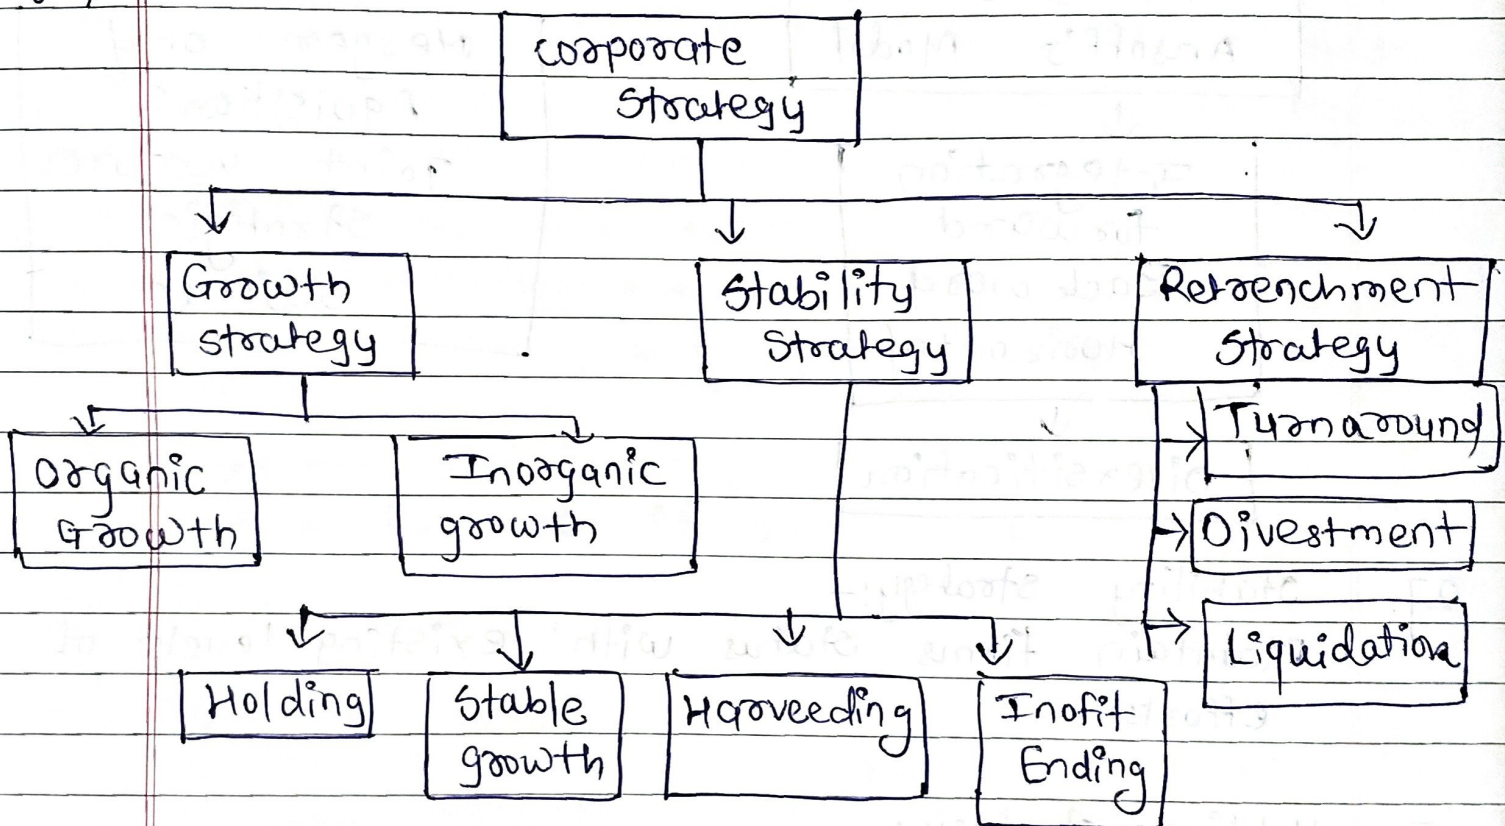 corporate
strategy
Growth
strategy
Stability
Strategy
Retrenchment
Strategy
Turnaround
Organic
Growth
Inorganic
growth
Divestment
Liquidation
Holding
Stable
growth
Harveeding
Inofit
Ending